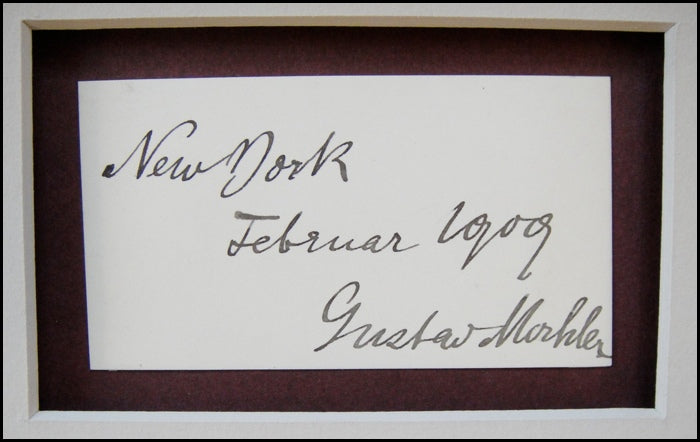 New York
Februar 1909
Gustav Mahler